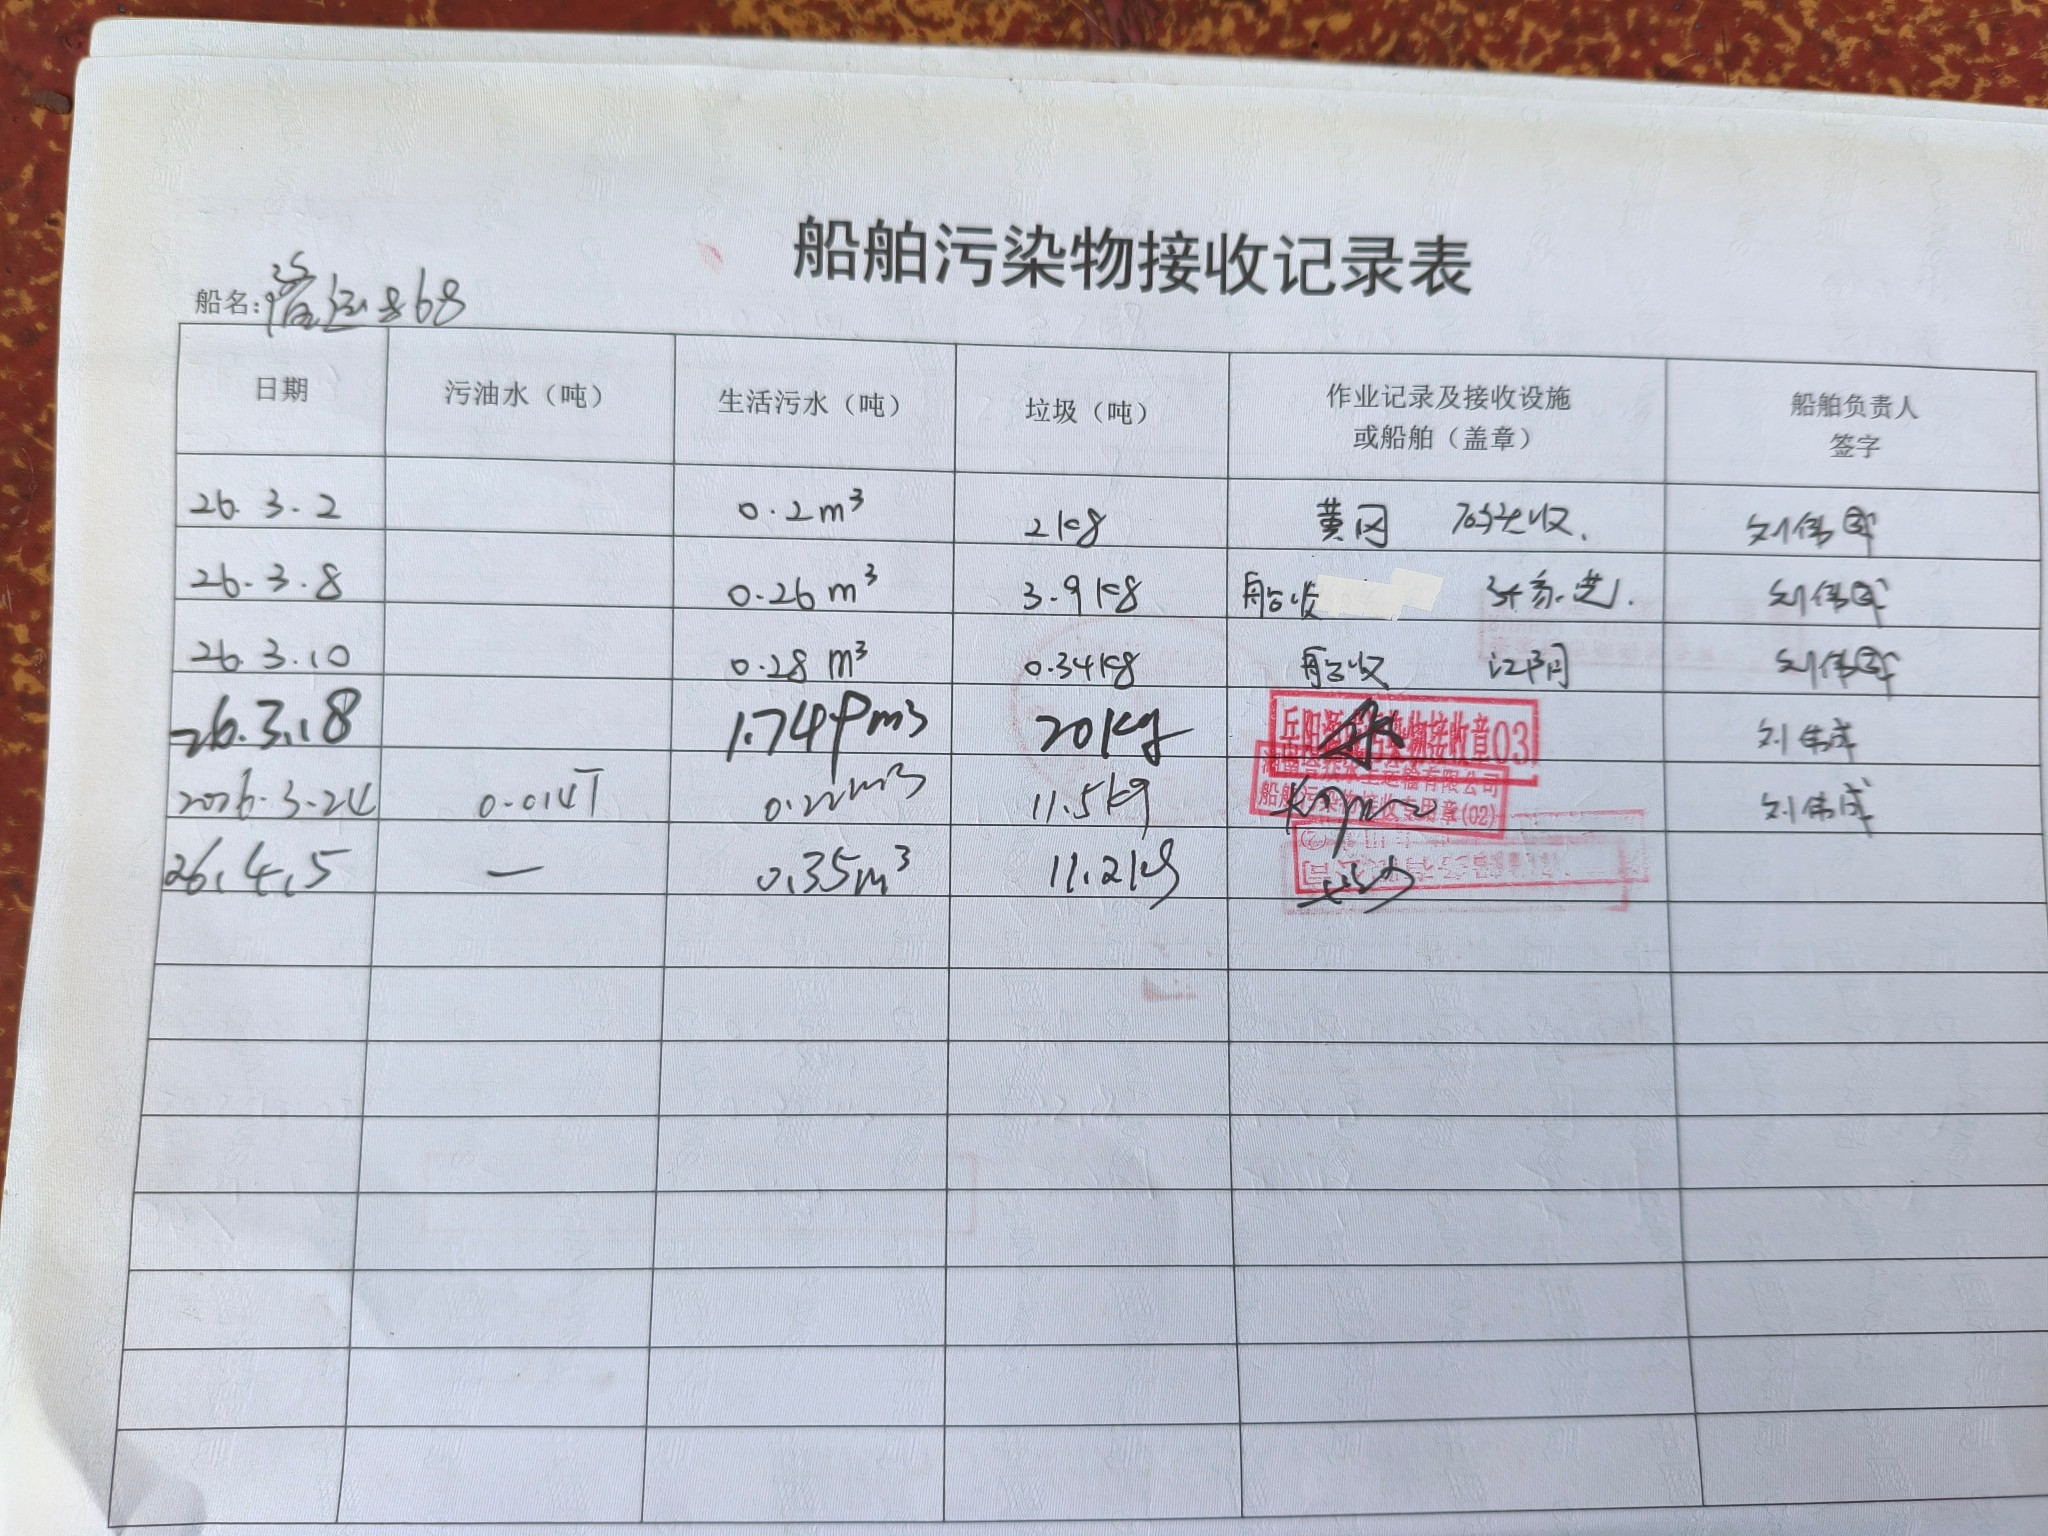 船舶污染物接收记录表
船名: 868
日期 污油水（吨） 生活污水（吨） 垃圾（吨） 作业记录及接收设施或船舶（盖章） 船舶负责人签字
26.3.2 0.2m³ 2kg 黄冈 刘伟成
26.3.8 0.26m³ 3.9kg 船收 刘伟成
26.3.10 0.28m³ 0.34kg 船收 刘伟成
26.3.18 1.749m³ 20kg 污染物接收章03 刘伟成
2026.3.24 0.014T 0.22m³ 11.5kg 水上运输有限公司 船舶污染物接收专用章(02) 刘伟成
26.4.5 — 0.35m³ 11.2kg